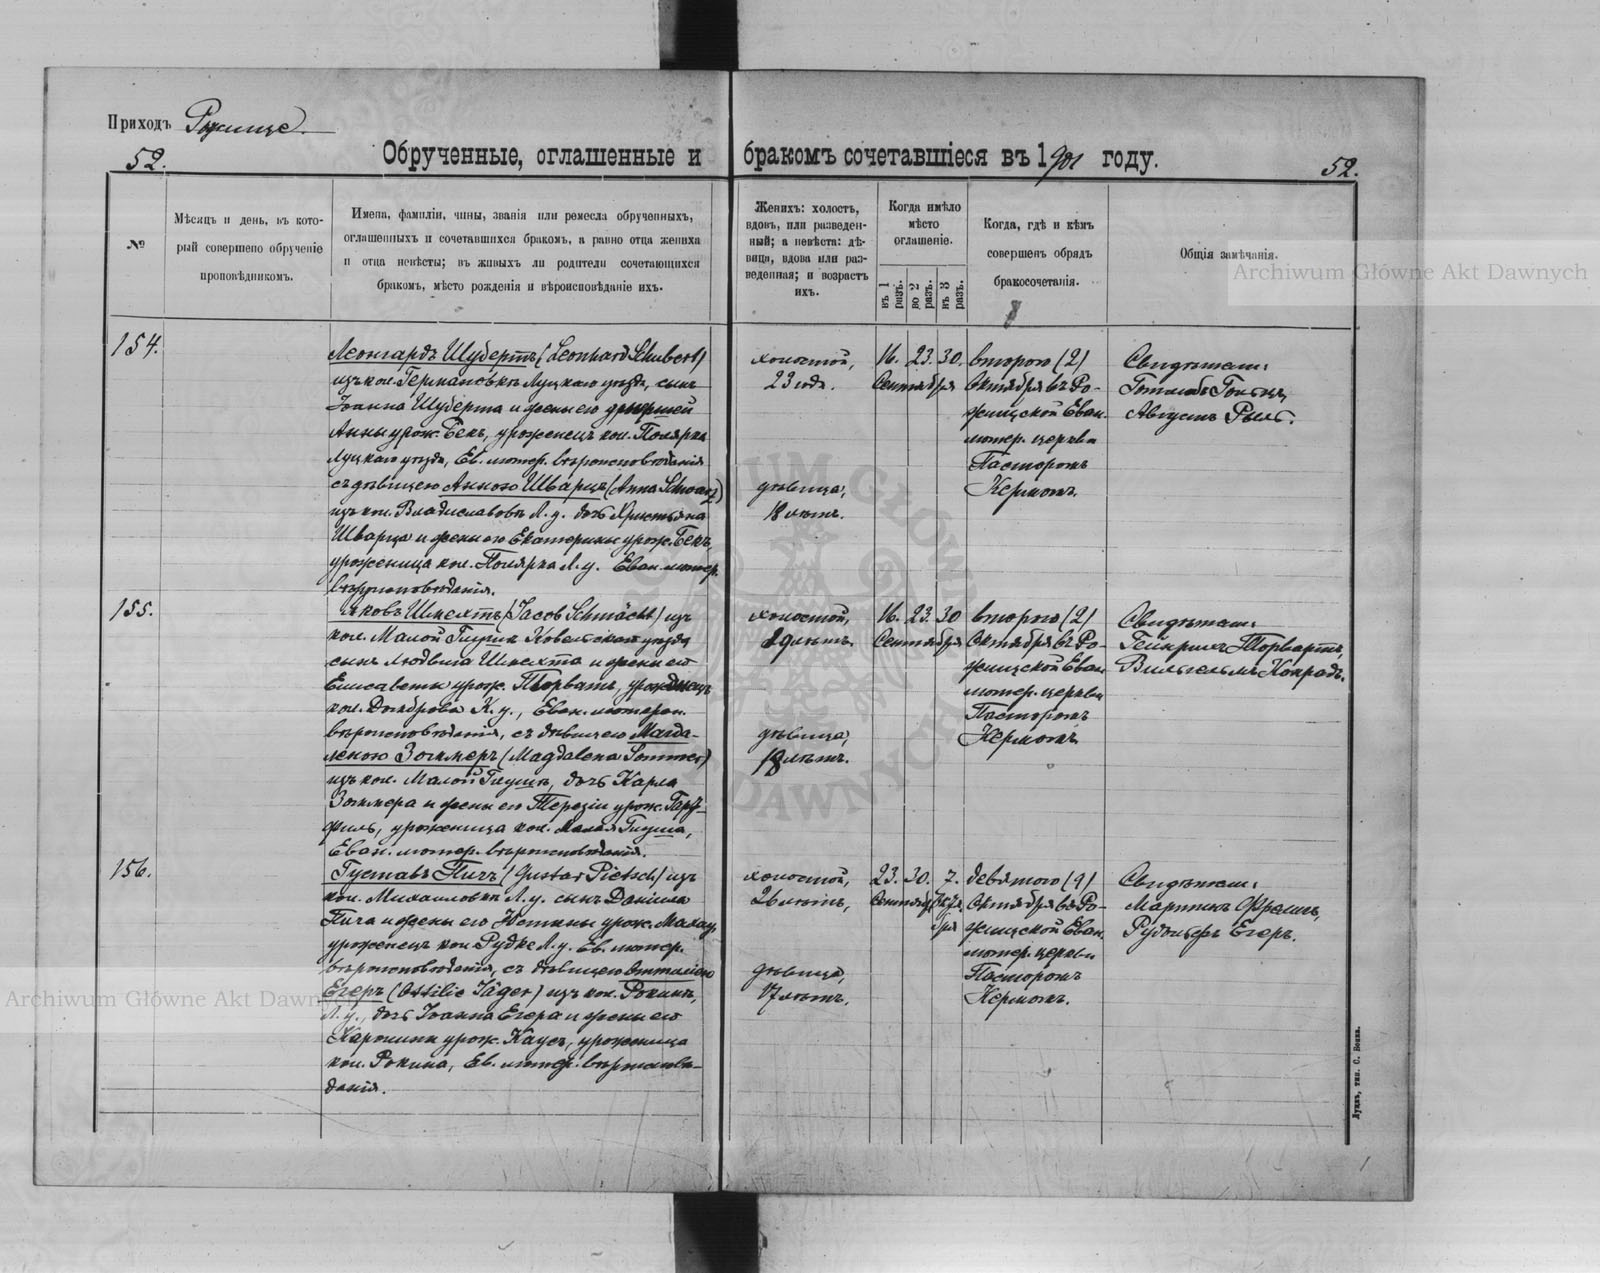 Приходъ Рожище.
52.
Обрученные, оглашенные и бракомъ сочетавшіеся въ 1901 году.
52.
№
Мѣсяцъ и день, въ кото-
рый совершено обрученіе
проповѣдникомъ.
Имена, фамиліи, чины, званія или ремесла обрученныхъ,
оглашенныхъ и сочетавшихся бракомъ, а равно отца жениха
и отца невѣсты; въ живыхъ ли родители сочетающихся
бракомъ, мѣсто рожденія и вѣроисповѣданіе ихъ.
Женихъ: холостъ,
вдовъ, или разведен-
ный; а невѣста: дѣ-
вица, вдова или раз-
веденная; и возрастъ
ихъ.
Когда имѣло
мѣсто
оглашеніе.
въ 1
разъ.
во 2
разъ.
въ 3
разъ.
Когда, гдѣ и кѣмъ
совершенъ обрядъ
бракосочетанія.
Общія замѣчанія.
Archiwum Główne Akt Dawnych
154.
Леонгардъ Шубертъ (Leonhard Schubert)
изъ кол. Германовка Луцкаго уѣзда, сынъ
Іоанна Шуберта и жены его умершей
Анны урож. Бекъ, уроженецъ кол. Полярка
Луцкаго уѣзда, Ев. лютер. вѣроисповѣданія
съ дѣвицею Анною Шварцъ (Anna Schwarz)
изъ кол. Владиславовъ Л. у. дочь Христьяна
Шварца и жены его Екатерины урож. Бекъ,
уроженица кол. Полярка Л. у. Еван. лютер.
вѣроисповѣданія.
холостой,
23 года.
дѣвица,
18 лѣтъ.
16. 23. 30.
Сентября
второго (2)
Октября въ Ро-
жищской Еван.
лютер. церкви
Пасторомъ
Кермомъ.
Свидѣтели:
Августъ
155.
Яковъ Шмехтъ (Jacob Schmächt) изъ
кол. Малой Глушѣ Ковельскаго уѣзда
сынъ Людвига Шмехта и жены его
Елисаветы урож. Торватъ, уроженецъ
кол. Домброва К. у., Еван. лютеран.
вѣроисповѣданія, съ дѣвицею Магда-
леною Зоммеръ (Magdalena Sommer)
изъ кол. Малой Глушѣ, дочь Карла
Зоммера и жены его Терезіи урож.
уроженица кол. Малая Глуша,
Еван. лютер. вѣроисповѣданія.
холостой,
лѣтъ.
дѣвица,
18 лѣтъ.
16. 23. 30
Сентября
второго (2)
Октября въ Ро-
жищской Еван.
лютер. церкви
Пасторомъ
Кермомъ
Свидѣтели:
Гейнрихъ Торвартъ,
Вильгельмъ Конрадъ.
156.
Густавъ Пичъ (Gustav Pietsch) изъ
кол. Михаиловка Л. у. сынъ Даніила
Пича и жены его урож.
уроженецъ кол. Рудке Л. у. Ев. лютер.
вѣроисповѣданія, съ дѣвицею Оттиліею
Егеръ (Ottilie Jäger) изъ кол. Рокини,
Л. у., дочь Іоанна Егера и жены его
Каролины урож. уроженица
кол. Рокина, Ев. лютер. вѣроисповѣ-
данія.
холостой,
26 лѣтъ,
дѣвица,
17 лѣтъ.
23. 30. 7.
Сентября Октя-
бря
девятого (9)
Октября въ Ро-
жищской Еван.
лютер. церкви
Пасторомъ
Кермомъ.
Свидѣтели:
Мартинъ
Рудольфъ Егеръ.
Archiwum Główne Akt Dawnych
Луцкъ, тип. С. Бокъ.